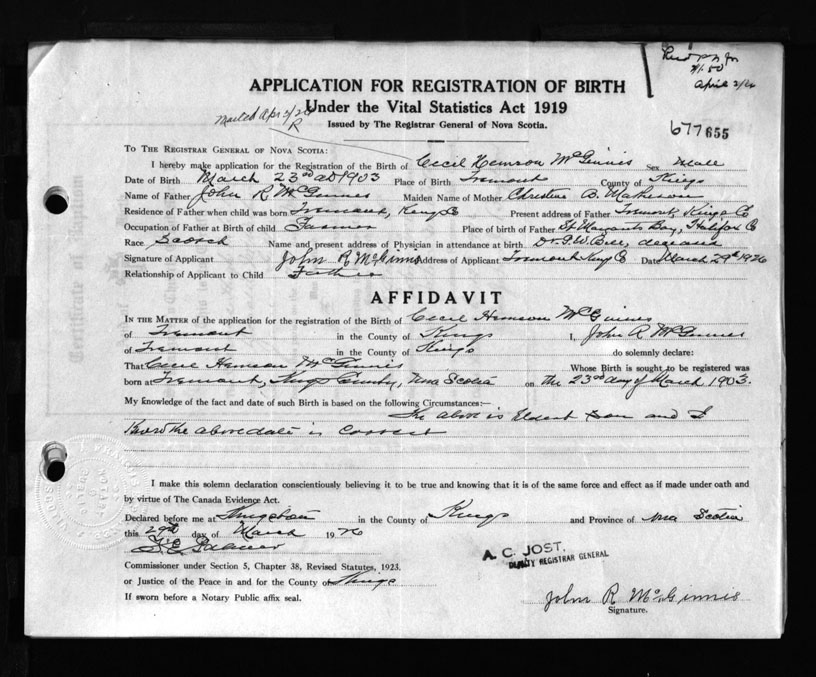 APPLICATION FOR REGISTRATION OF BIRTH
April 2/26
Under the Vital Statistics Act 1919
Mailed Apr 3/26
R
Issued by The Registrar General of Nova Scotia.
677655
TO THE REGISTRAR GENERAL OF NOVA SCOTIA:
I hereby make application for the Registration of the Birth of Cecil McGinnis Sex Male
Date of Birth March 23rd AD 1903 Place of Birth Tremont County of Kings
Name of Father John R McGinnis Maiden Name of Mother Christine B.
Residence of Father when child was born Tremont, Kings Co Present address of Father Tremont Kings Co
Occupation of Father at Birth of child Farmer Place of birth of Father St Margarets Bay, Halifax Co
Race Scotch Name and present address of Physician in attendance at birth Dr. deceased
Signature of Applicant John R McGinnis Address of Applicant Tremont Kings Co Date March 29th 1926
Relationship of Applicant to Child Father
AFFIDAVIT
IN THE MATTER of the application for the registration of the Birth of Cecil McGinnis
of Tremont in the County of Kings I, John R McGinnis
of Tremont in the County of Kings do solemnly declare:
That Cecil McGinnis Whose Birth is sought to be registered was
born at Tremont, Kings County, Nova Scotia on the 23rd day of March 1903.
My knowledge of the fact and date of such Birth is based on the following Circumstances:—
The above is Eldest Son and I
Know the above date is Correct
I make this solemn declaration conscientiously believing it to be true and knowing that it is of the same force and effect as if made under oath and
by virtue of The Canada Evidence Act.
Declared before me at Kingston in the County of Kings and Province of Nova Scotia
this 29th day of March 1926
A. C. JOST,
DEPUTY REGISTRAR GENERAL
Commissioner under Section 5, Chapter 38, Revised Statutes, 1923.
or Justice of the Peace in and for the County of Kings
If sworn before a Notary Public affix seal.
John R McGinnis
Signature.